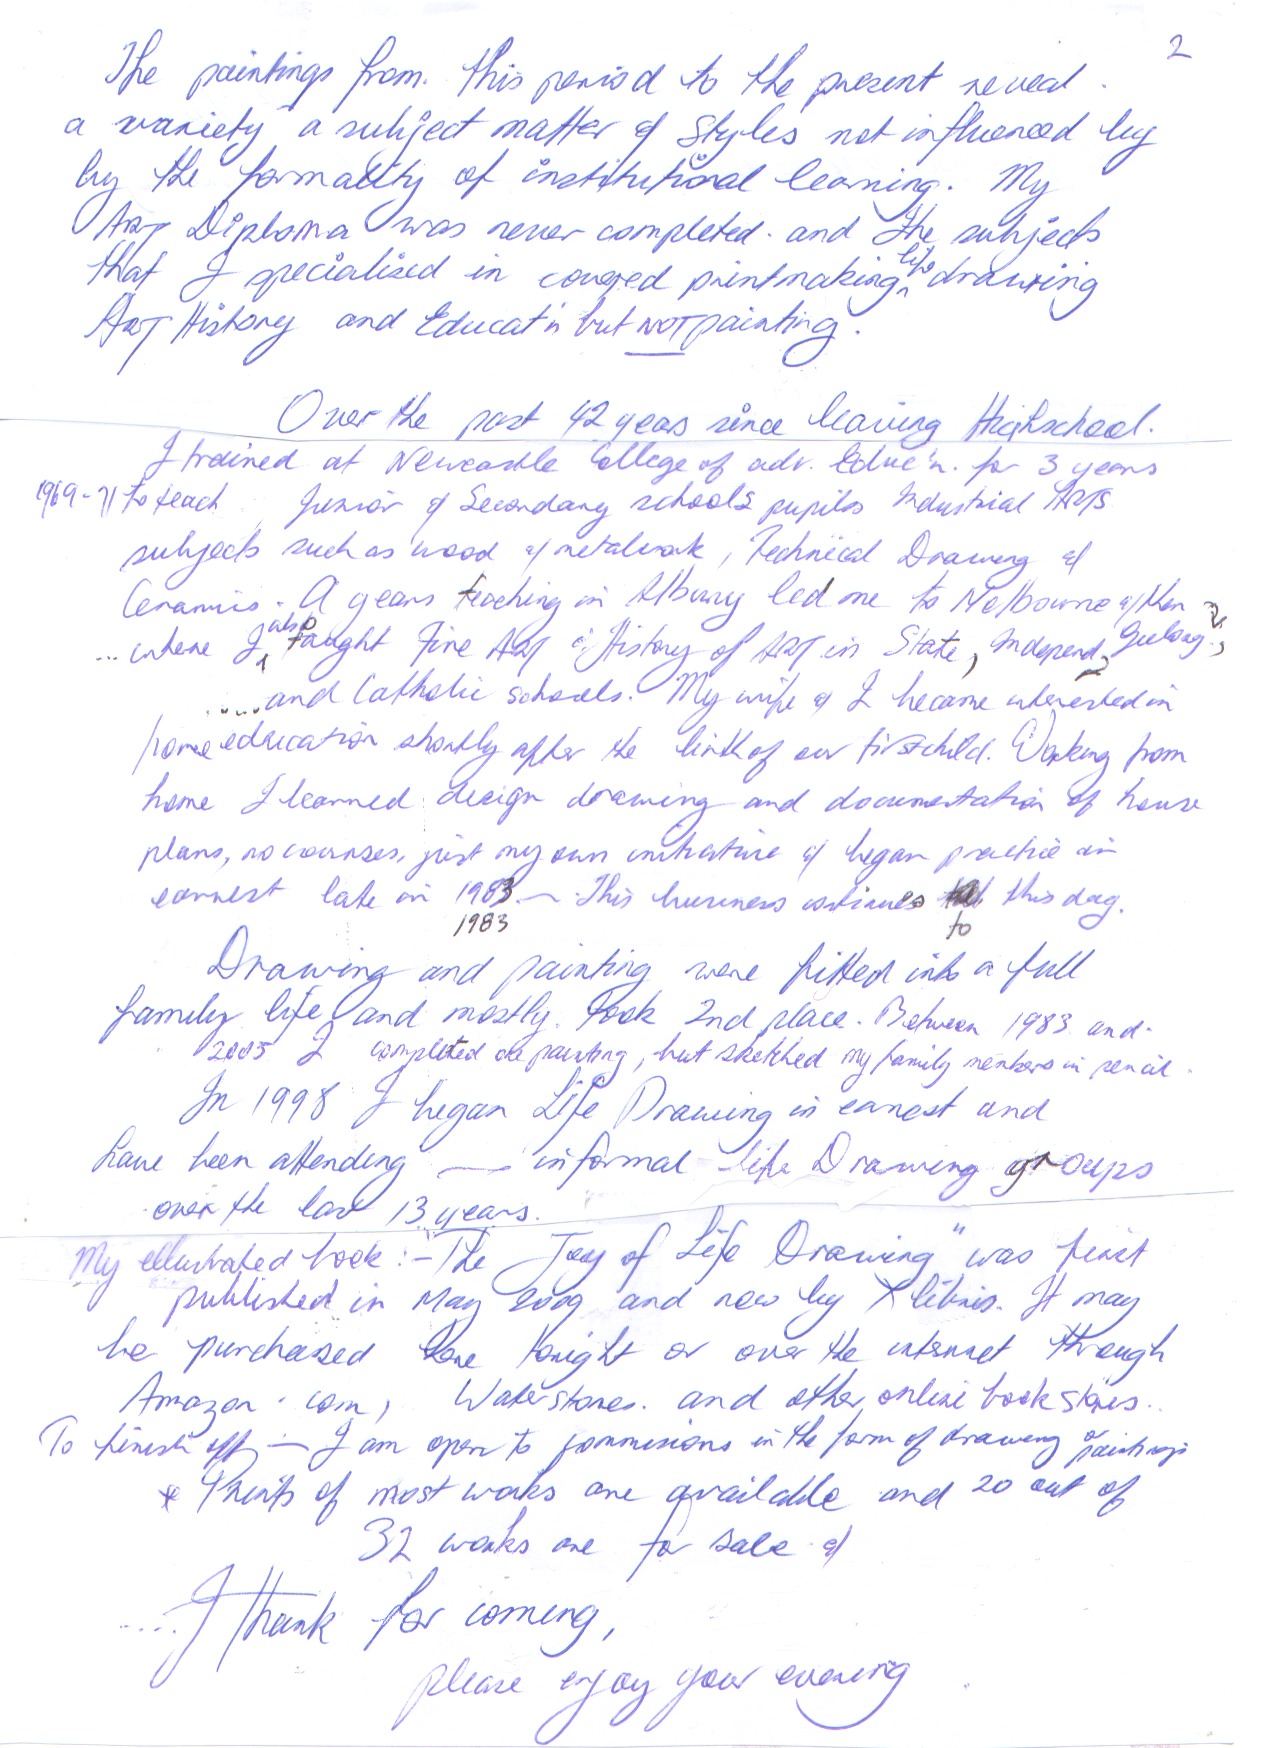 2
The paintings from. this period to the present reveal.
a variety a subject matter & styles not influenced by
by the formality of institutional learning. My
Art Diploma was never completed. and the subjects
that I specialised in covered printmaking, life drawing
Art History and Educat'n but NOT painting.
Over the past 42 years since leaving Highschool.
I trained at Newcastle College of adv. Educ'n. for 3 years
1969-71 to teach Junior & Secondary schools pupils Industrial Arts
subjects such as wood & metalwork, Technical Drawing &
Ceramics. A years teaching in Albury led me to Melbourne & then
... where I also taught Fine Art & History of Art in State, Independ, Geelong,
..... and Catholic schools. My wife & I became interested in
home education shortly after the birth of our first child. Working from
home I learned design drawing and documentation of house
plans, no courses, just my own initiative & began practice in
earnest late in 1983 — This business continues this day.
1983 to
Drawing and painting were fitted into a full
family life and mostly. took 2nd place. Between 1983 and
2005 I completed one painting, but sketched my family members in pencil.
In 1998 I began Life Drawing in earnest and
have been attending — informal life Drawing groups
over the last 13 years.
My illustrated book :- The Joy of Life Drawing" was first
published in May 2009 and now by Xlibris. It may
be purchased here tonight or over the internet through
Amazon.com, Waterstones. and other online book stores..
To finish off — I am open to commissions in the form of drawing or paintings
* Prints of most works are available and 20 out of
32 works are for sale &
.... I thank for coming,
please enjoy your evening.